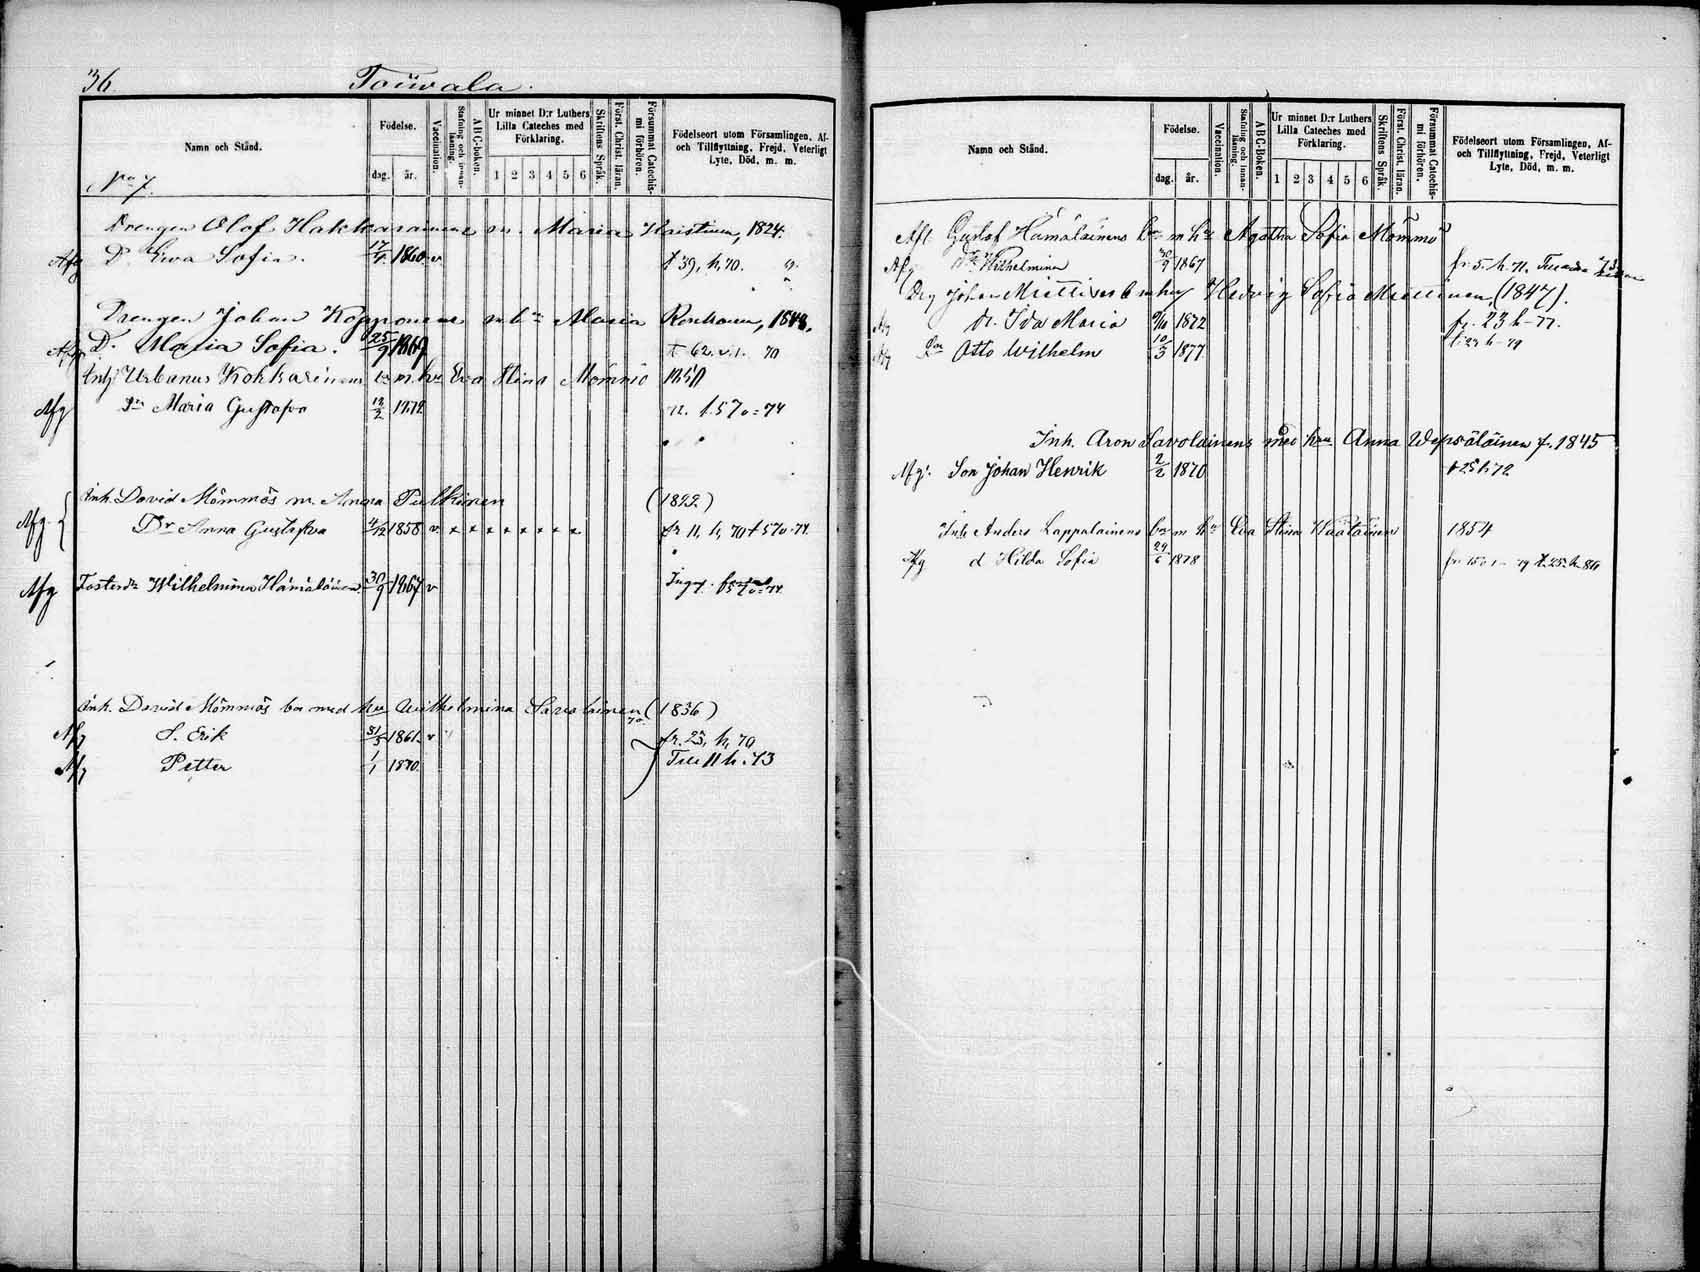 36.
Touvala.
Namn och Stånd.
Födelse.
dag.
år.
Vaccination.
Stafning och innanläsning.
ABC-boken.
Ur minnet D:r Luthers
Lilla Cateches med
Förklaring.
1 2 3 4 5 6
Skriftens Språk.
Först. Christ. läran.
Försummat Catechismi förhören.
Födelseort utom Församlingen, Af-
och Tillflyttning, Frejd, Veterligt
Lyte, Död, m. m.
No 7.
Drengen Olof Hakkarainens m. Maria Kristina, 1824.
Afg D. Ewa Sofia. 17/4 1860. v t 39, h, 70.
Drengen Johan Kopponens m Maria Ronkanen, 1843.
Afg Dr Maria Sofia. 25/9 1869 t 62. v. 1. 70
Inh Urbanus Kokkarinens m. hu Eva Stina Mömmö 1850
Afg Dr Maria Gustafva 12/2 1872 t. 570 = 74
Inh. David Mömmös m. Anna Tulkinen (1822)
Afg. Dr Anna Gustafva 4/12 1858 v. x x x x x x x x fr 11, h, 70 t 570 = 74.
Afg Fosterdr Wilhelmina Hämäläinen 30/9 1867 v Ingg. 570 = 74
Inh. David Mömmös bn med hu Wilhelmina Savolainen (1836)
Afg S. Erik 31/5 1861. v fr. 23, h, 70
Afg Petter 1/1 1870. Till 11 h. 73
Namn och Stånd.
Födelse.
dag.
år.
Vaccination.
Stafning och innanläsning.
ABC-Boken.
Ur minnet D:r Luthers
Lilla Cateches med
Förklaring.
1 2 3 4 5 6
Skriftens Språk.
Först. Christ. läran.
Försummat Catechismi förhören.
Födelseort utom Församlingen, Af-
och Tillflyttning, Frejd, Veterligt
Lyte, Död, m. m.
Afl Gustaf Hämäläinens bn m hu Agatha Sofia Mömmö
Afg Dr Wilhelmina 30/9 1867 fr. 5. h 71.
Drg Johan Miettisens bn m hu Hedvig Sofia Miettinen (1847).
Afg dr. Ida Maria 1872 fr. 23 h - 77.
Afg son Otto Wilhelm 10/3 1877 t 23 h - 79
Inh. Aron Savolainens med hru Anna Wepsäläinen f. 1845
Afg. Son Johan Henrik 2/2 1870 t 25 h 72
Inh Anders Lappalainens bn m hu Eva Stina Käätäinen 1854
Afg d Hilda Sofia 29/6 1878